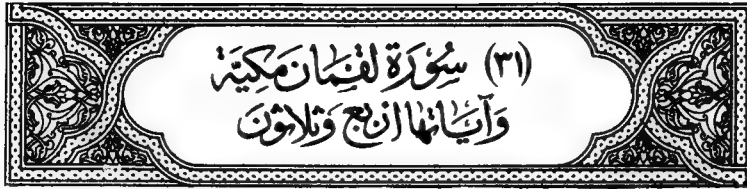 (٣١) سُوْرَة لقمَان مَكيَّة
وَآيَاتها اربَع وَثلاثونَ